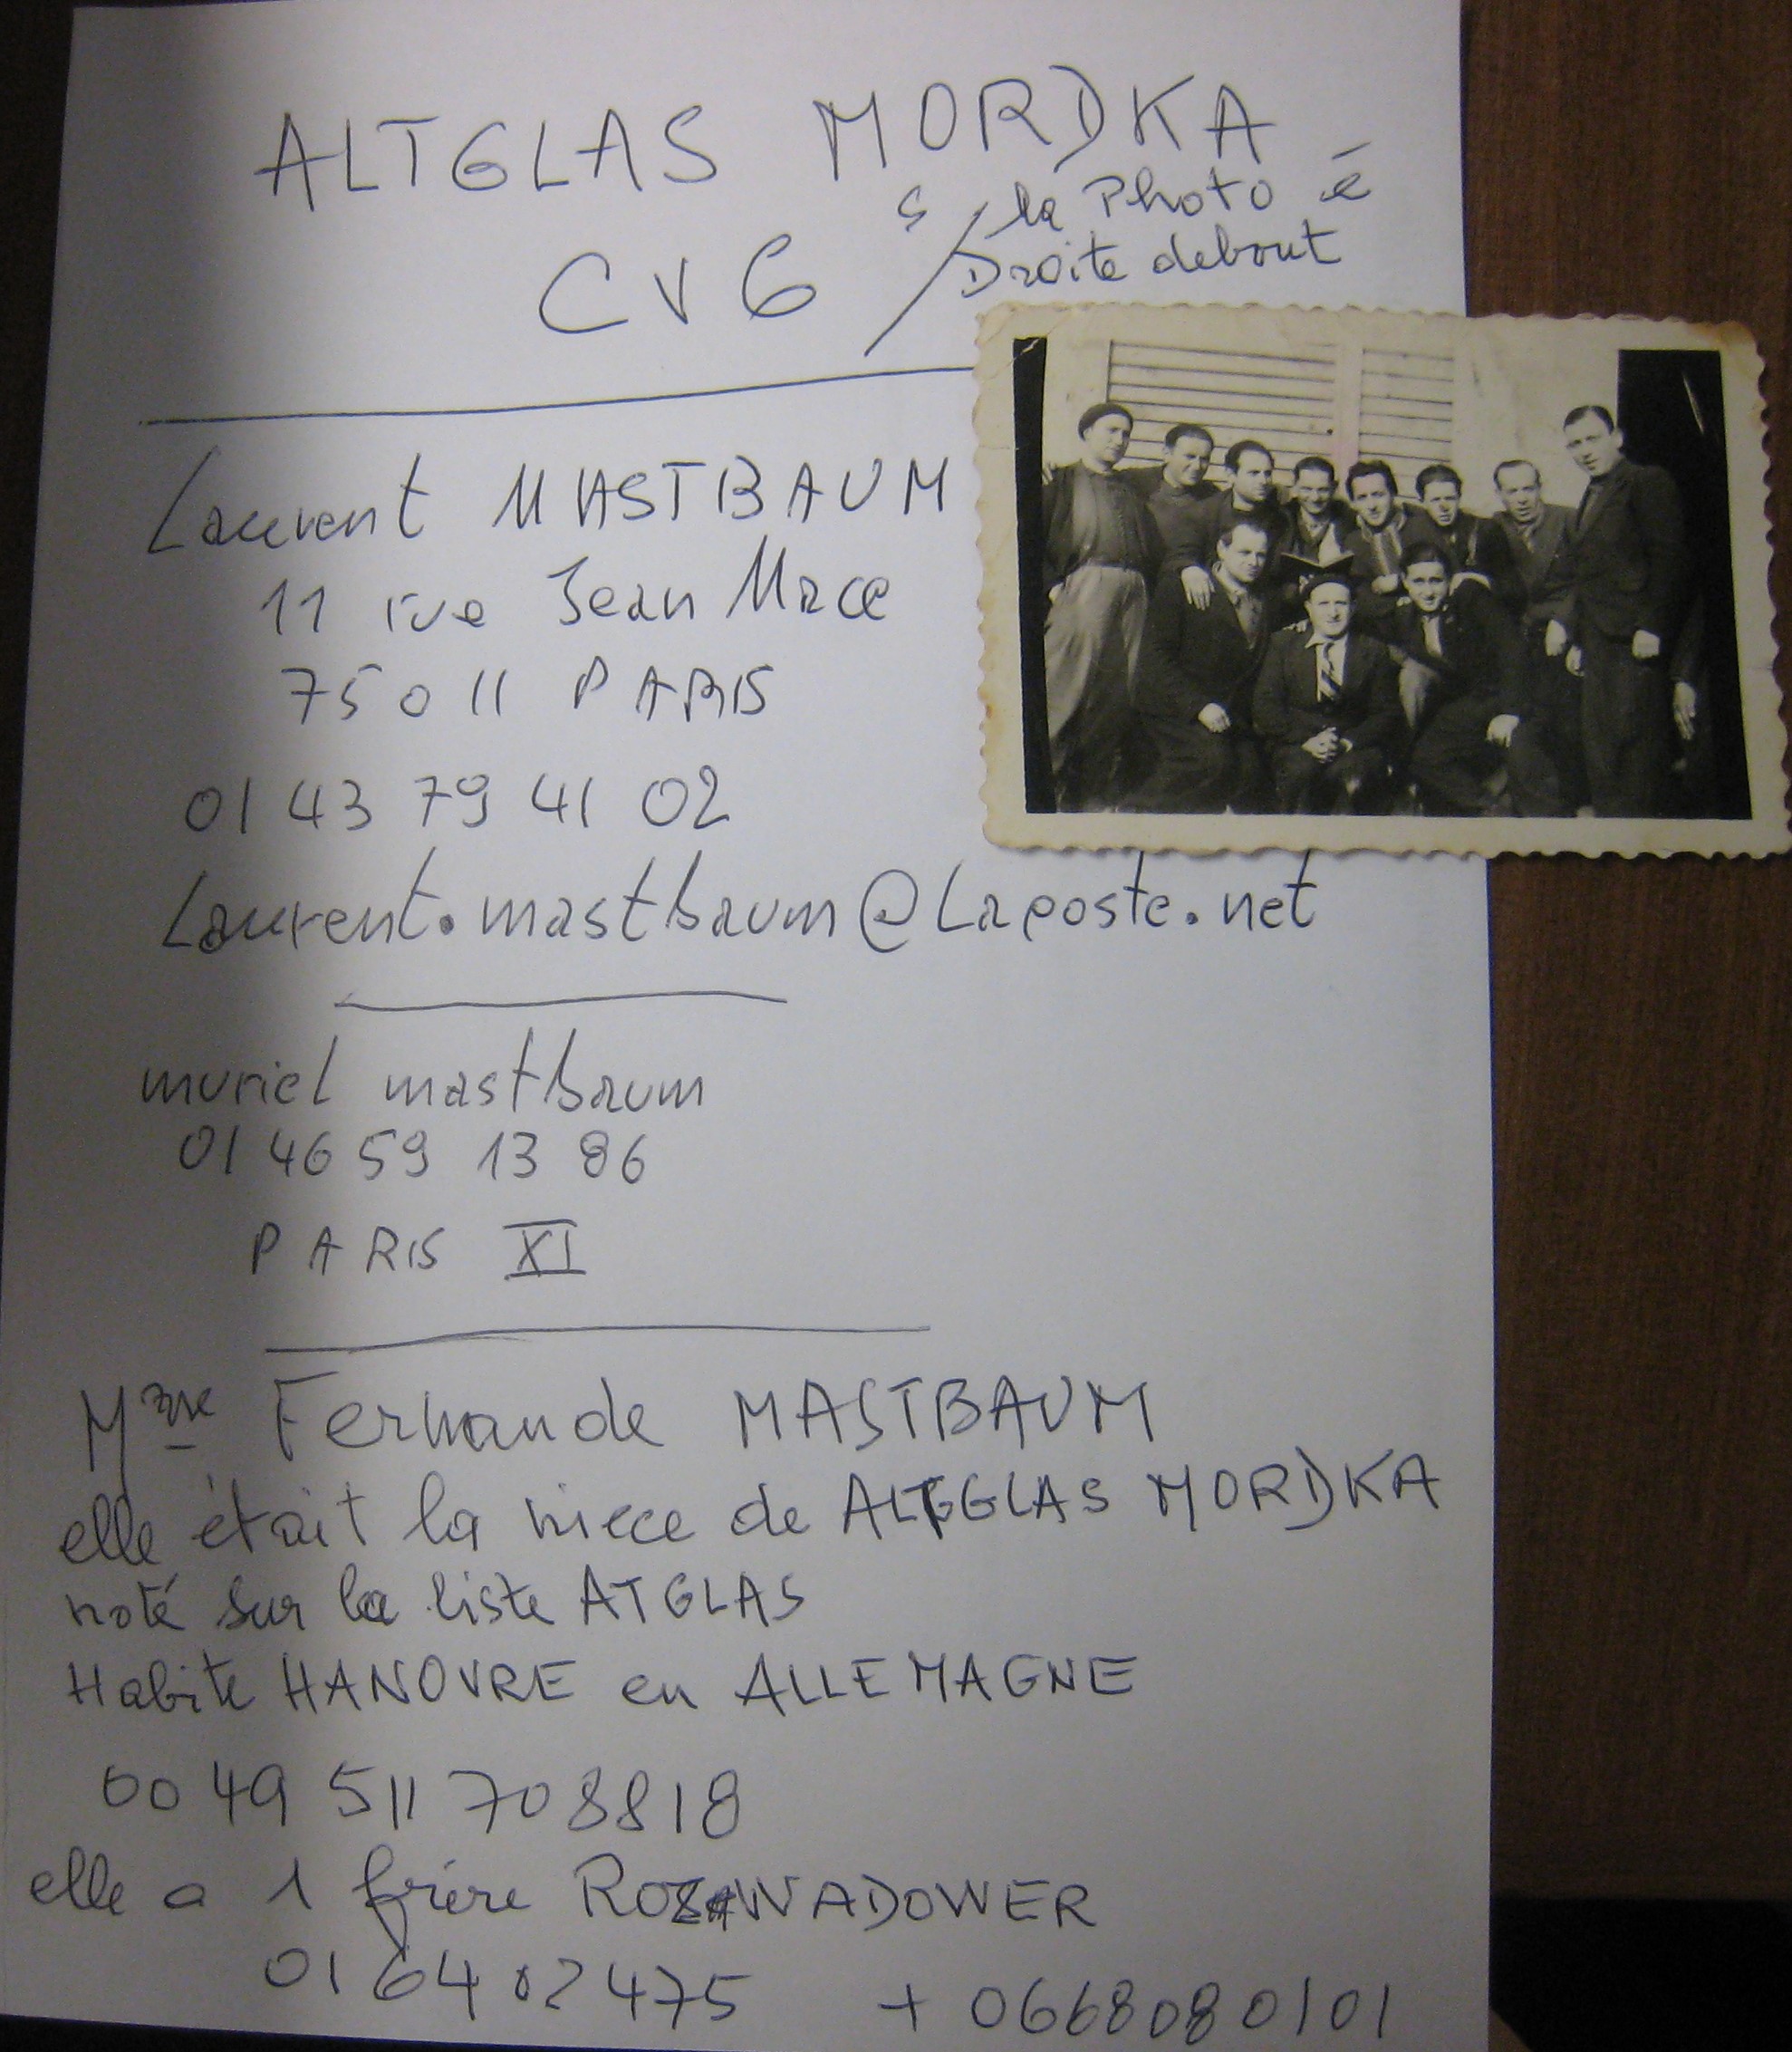 ALTGLAS MORDKA
CV6 / s/ la Photo é
Droite debout
Laurent MASTBAUM
11 rue Jean Mace
75011 PARIS
01 43 79 41 02
Laurent.mastbaum@Laposte.net
muriel mastbaum
01 46 59 13 86
PARIS XI
Mme Fernande MASTBAUM
elle était la niece de ALTGLAS MORDKA
noté sur la liste ATGLAS
Habite HANOVRE en ALLEMAGNE
00 49 511 708818
elle a 1 frère ROZWADOWER
01 64 02 475 + 0668080101